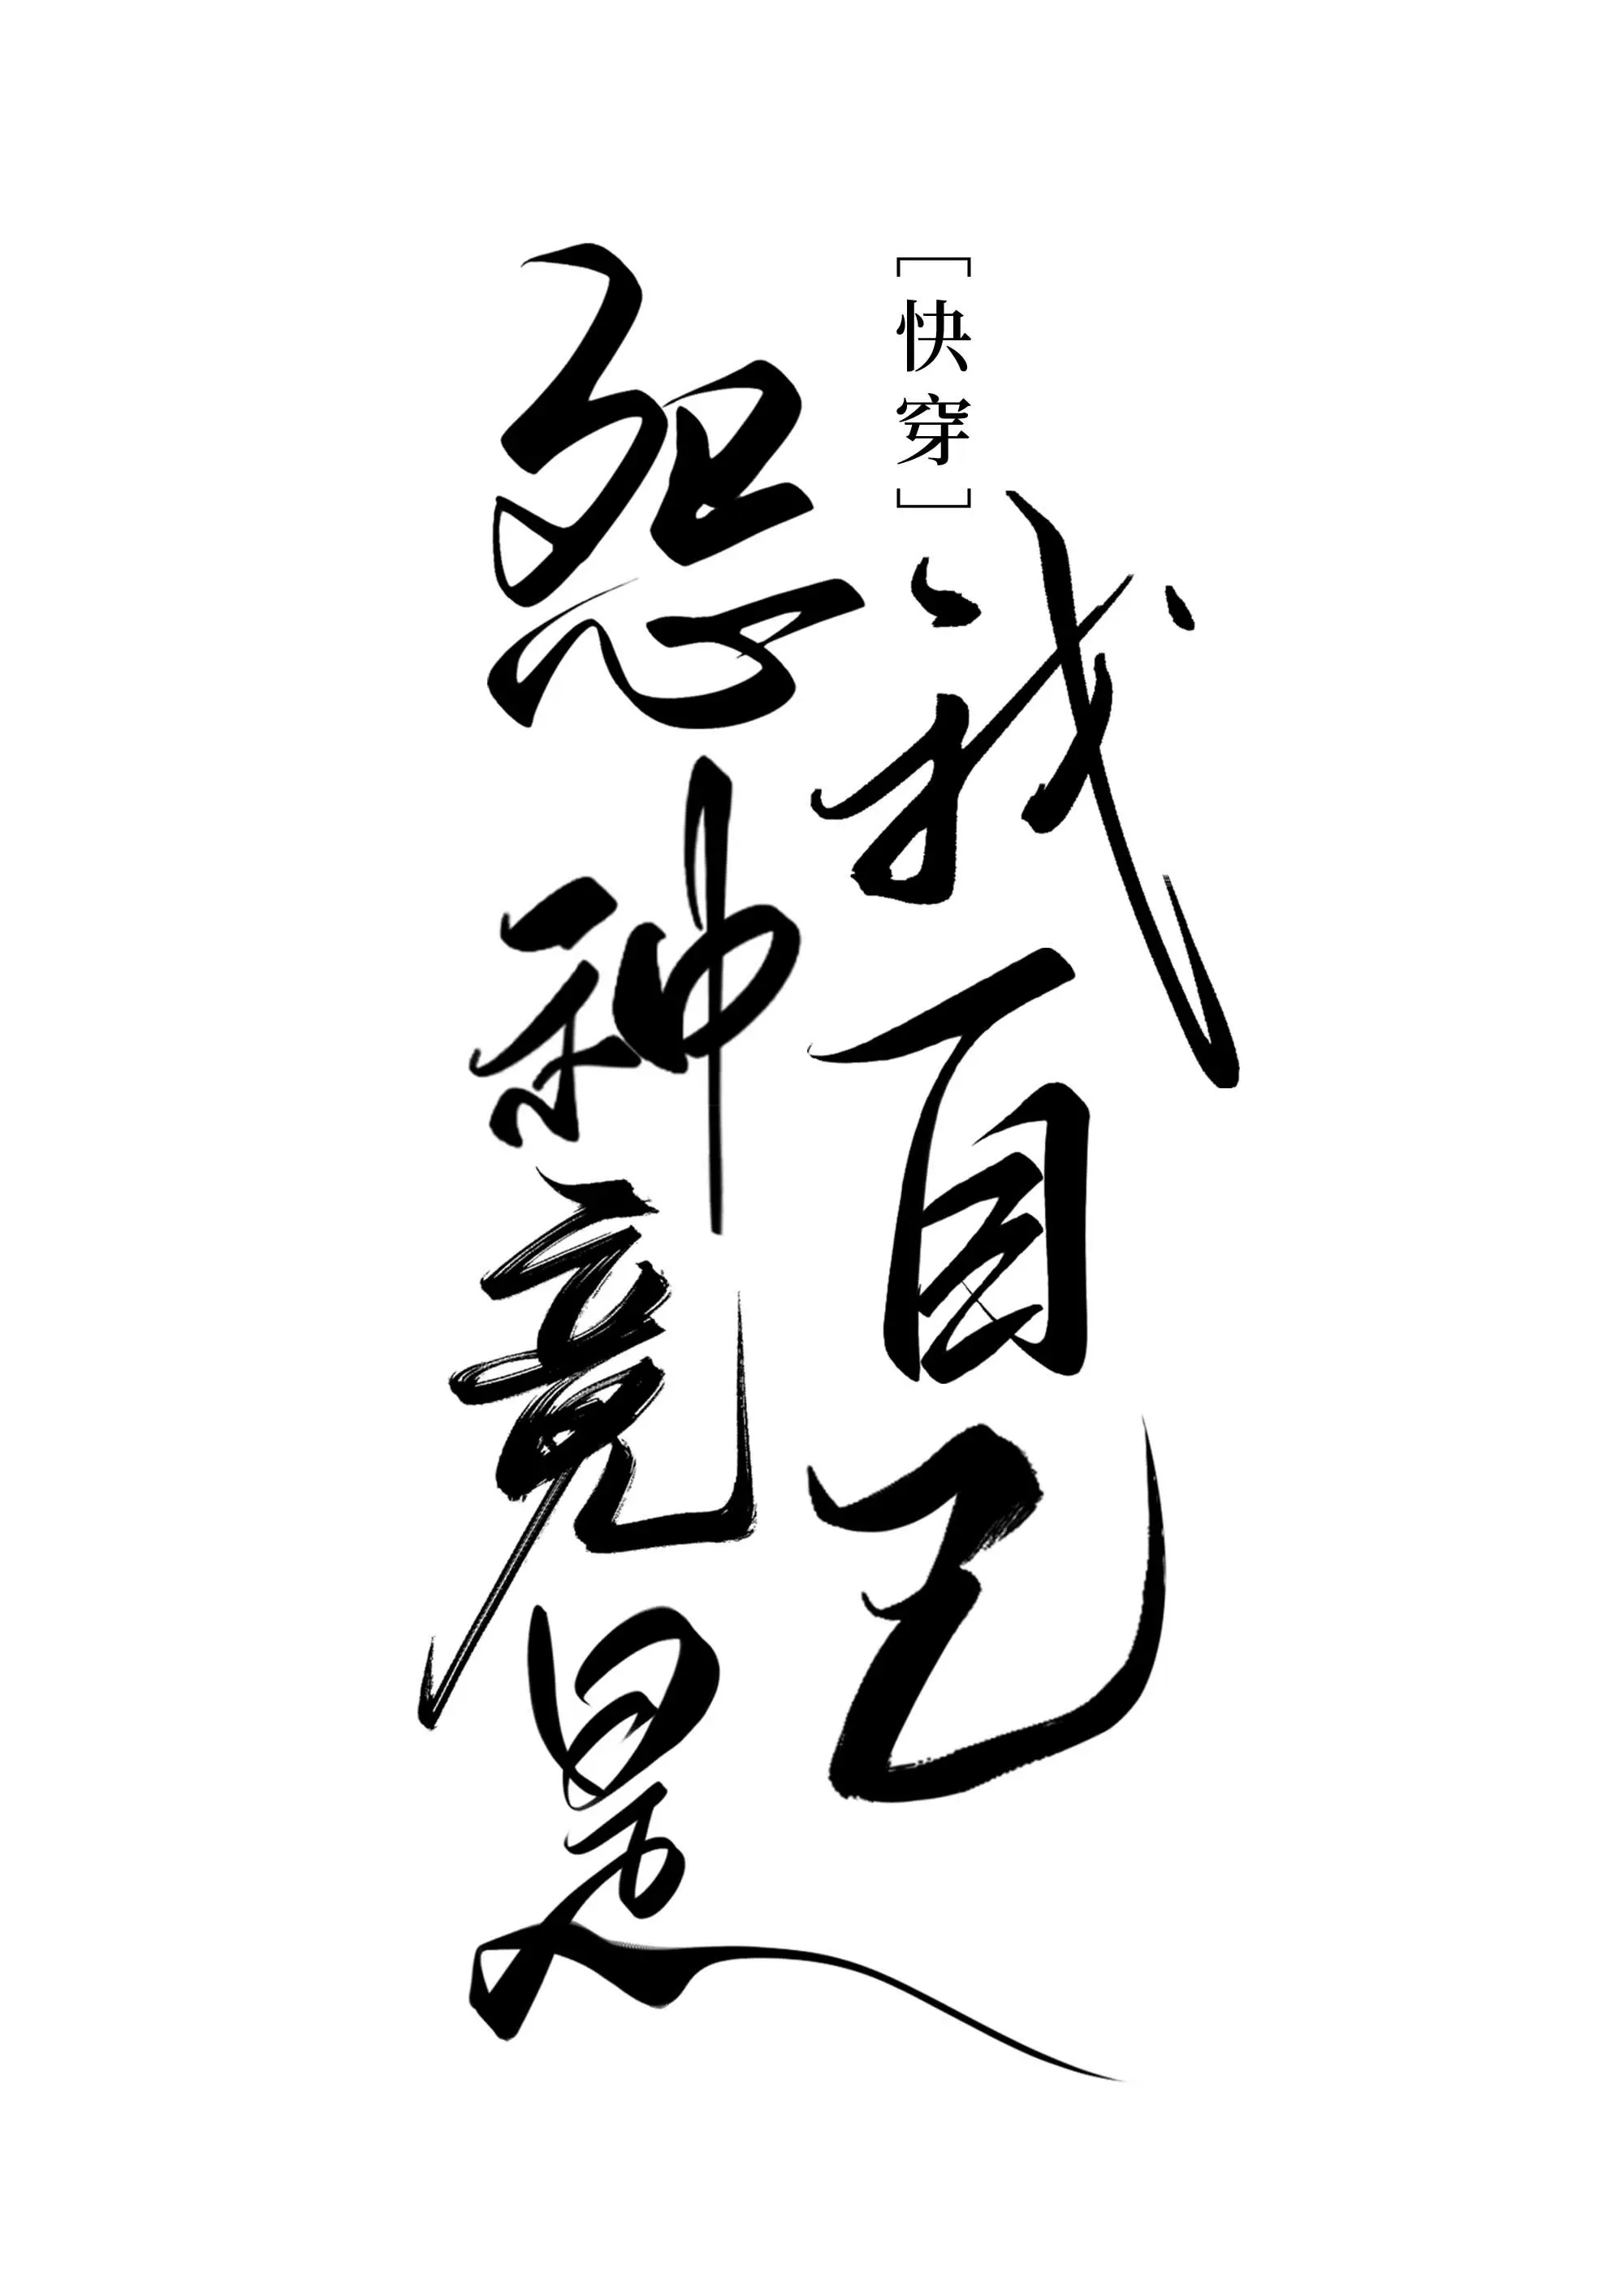 怨种竟是
[快穿]
我自己